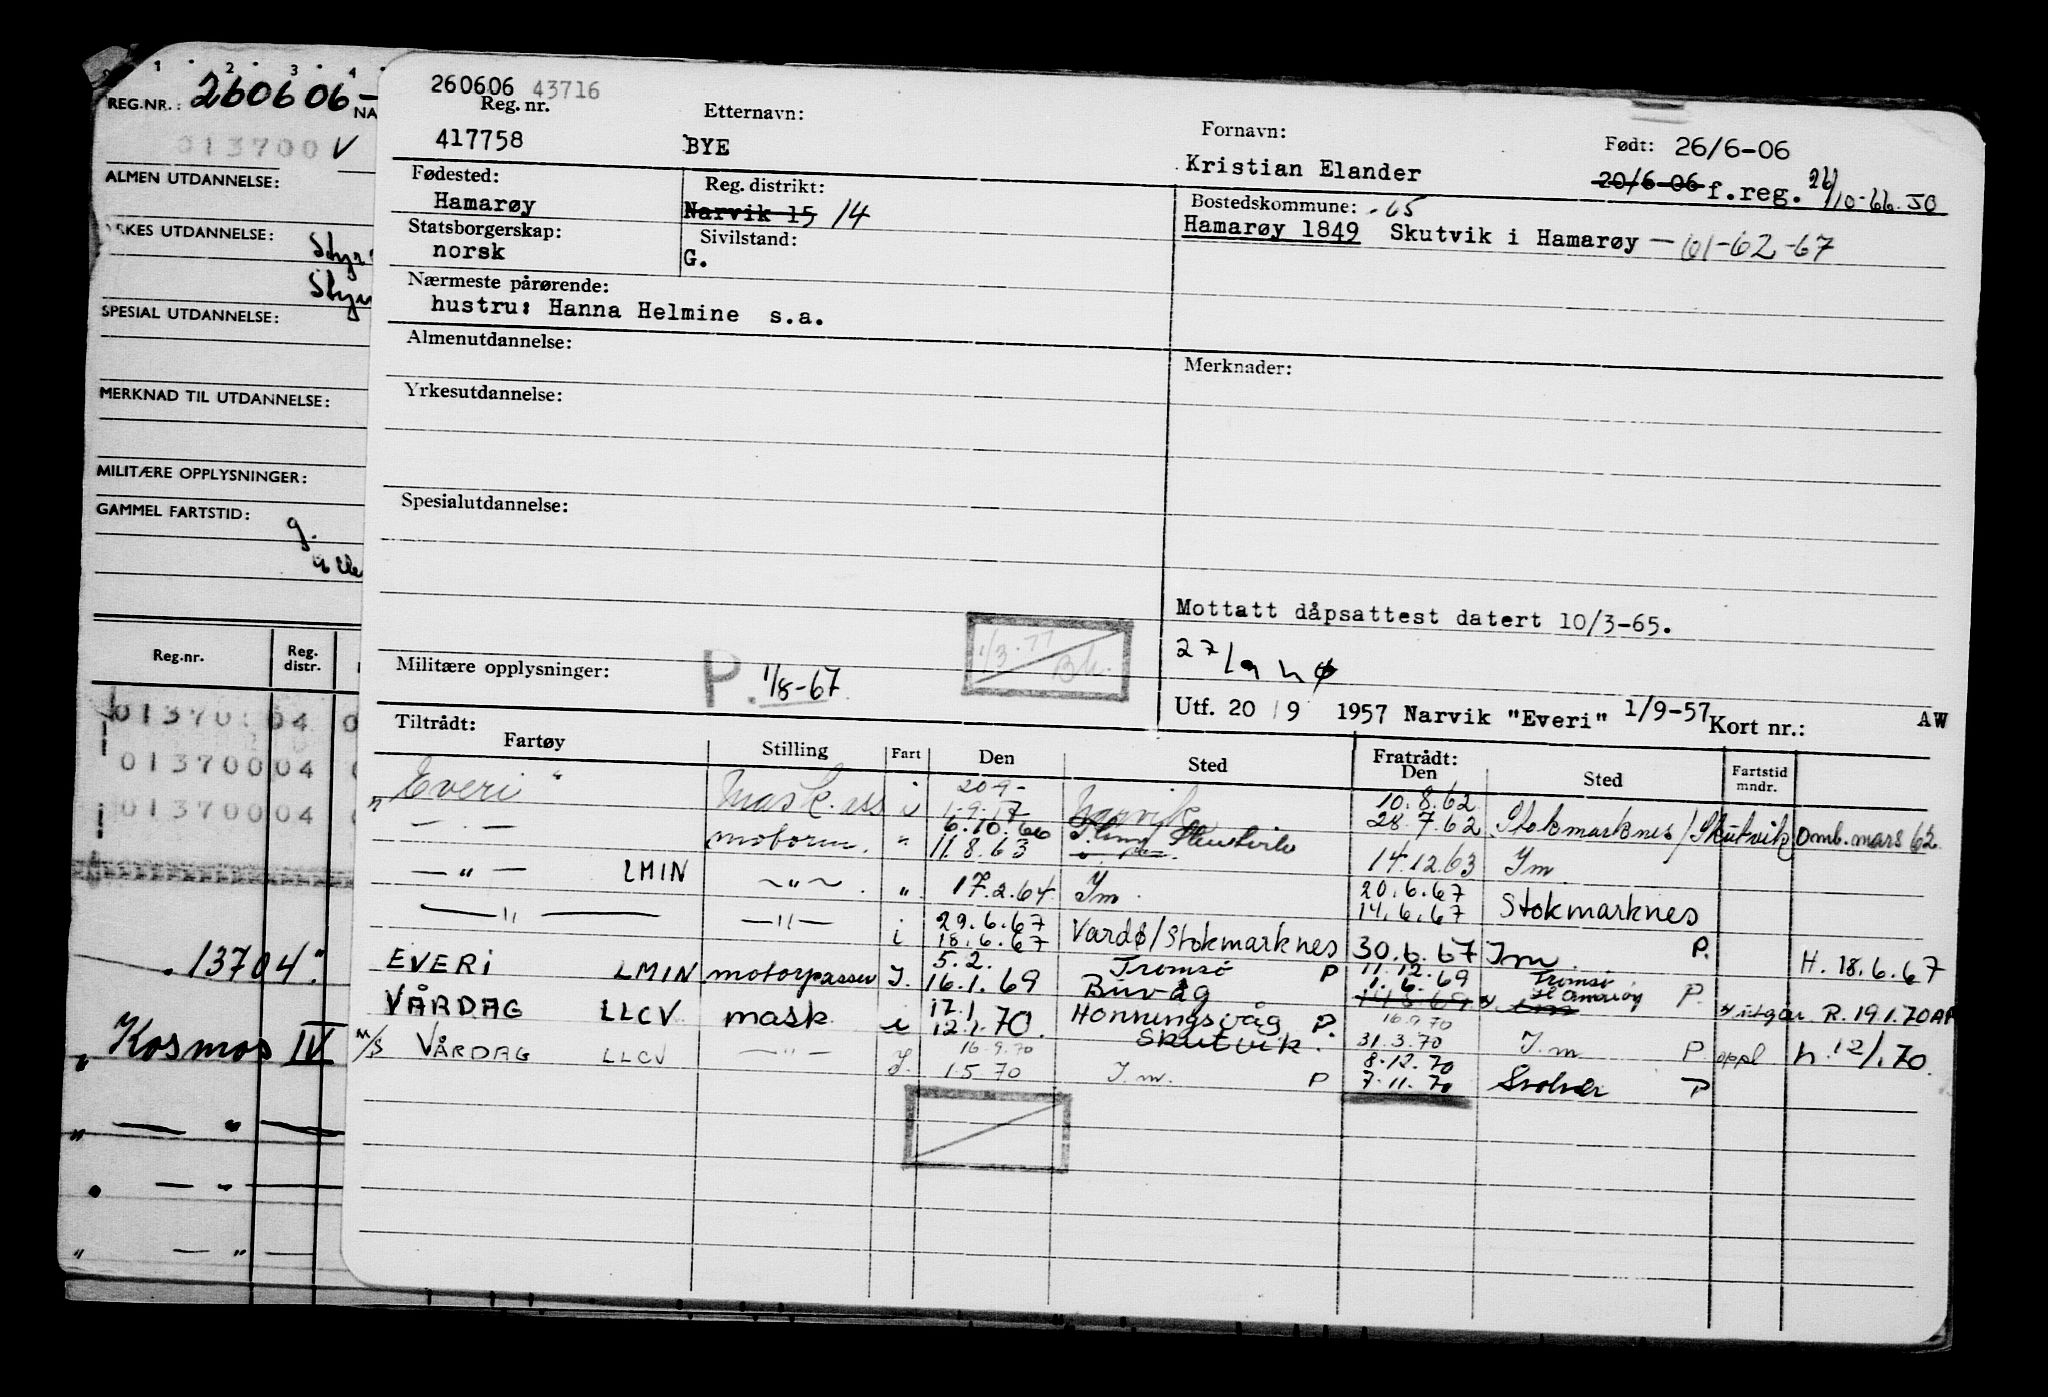 1 2 3 4
REG.NR.: 260606-
NA
013700 V
ALMEN UTDANNELSE:
RKES UTDANNELSE:
SPESIAL UTDANNELSE:
MERKNAD TIL UTDANNELSE:
MILITÆRE OPPLYSNINGER:
GAMMEL FARTSTID: g.
Reg.nr. Reg. distr.
01370 04 0
01370004
01370004
. 13704."
" Kosmos IV
" — " —
" — " —
" — " —
260606 43716
Reg. nr. Etternavn: Fornavn: Født: 26/6-06
417758 BYE Kristian Elander 20/6-06 f.reg. 26/10-66. JO
Fødested: Reg. distrikt: Bostedskommune: -65
Hamarøy Narvik 15 14 Hamarøy 1849 Skutvik i Hamarøy — 61-62-67
Statsborgerskap: Sivilstand:
norsk G.
Nærmeste pårørende:
hustru: Hanna Helmine s.a.
Almenutdannelse: Merknader:
Yrkesutdannelse:
Spesialutdannelse:
Mottatt dåpsattest datert 10/3-65.
1/3-77 Bh.
27/9 hø
Militære opplysninger: P. 1/8-67
Utf. 20/9 1957 Narvik "Everi" 1/9-57 Kort nr.: AW
Tiltrådt: Fratrådt:
Fartøy Stilling Fart Den Sted Den Sted Fartstid mndr.
20-9- 10.8.62
" Everi " Mask.ass i 1.9.57 Narvik 28.7.62 Stokmarknes/Skutvik omb. mars 62
6.10.66
— " — motorm. " 11.8.63 14.12.63 Im
20.6.67
— " — LMIN — " — . " 17.2.64 Im. 14.6.67 Stokmarknes
29.6.67
— " — — " — i 18.6.67 Vardø/Stokmarknes 30.6.67 Im. P. H. 18.6.67
5.2. Tromsø 11.12.69 Tromsø
EVERI LMIN motorpasser I. 16.1.69 Buvåg P 1.6.69 Hamarøy P. x utgår R. 19.1.70 AP
17.1. 16.9.70
VÅRDAG LLCV mask i 12.1.70. Honningsvåg P. 31.3.70 I.m P oppl h. 12/1.70
Skutvik.
16.9.70 8.12.70
M/S VÅRDAG LLCV — " — I. 1.5.70 I.m. P 7.11.70 Svolvær P